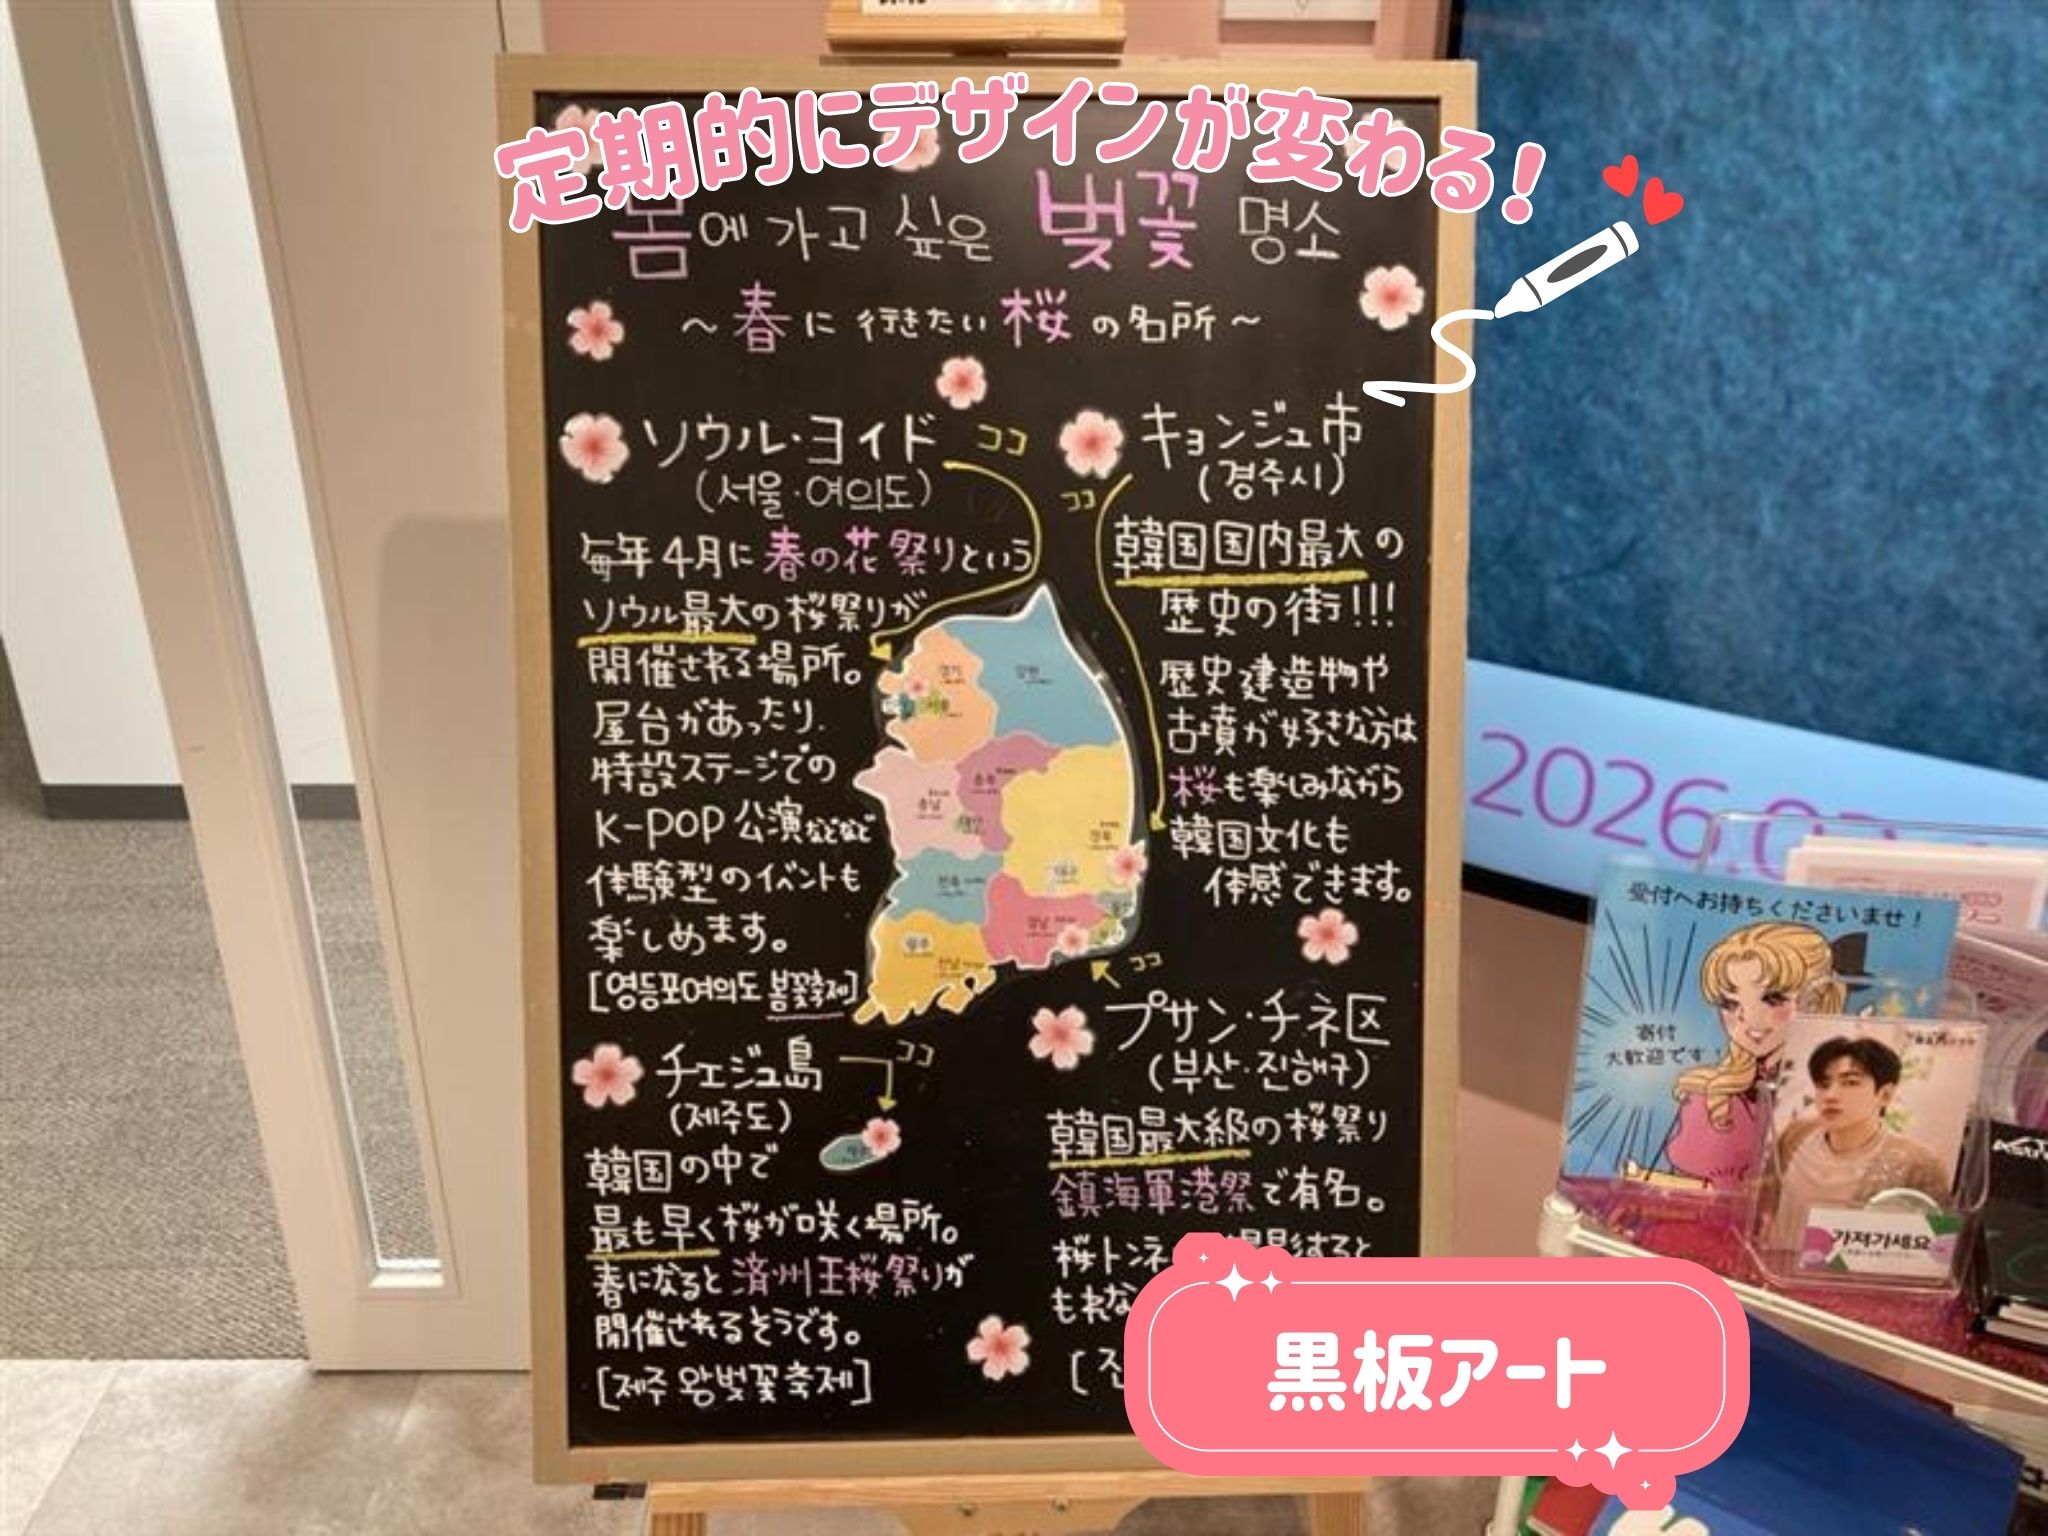 定期的にデザインが変わる!
봄에 가고 싶은 벚꽃 명소
~春に行きたい桜の名所~
ソウル・ヨイド
(서울·여의도)
ココ
毎年4月に春の花祭りという
ソウル最大の桜祭りが
開催される場所。
屋台があったり、
特設ステージでの
K-POP公演などなど
体験型のイベントも
楽しめます。
[영등포여의도 봄꽃축제]
キョンジュ市
(경주시)
ココ
韓国国内最大の
歴史の街!!!
歴史建造物や
古墳が好きな方は
桜も楽しみながら
韓国文化も
体感できます。
チェジュ島
(제주도)
ココ
韓国の中で
最も早く桜が咲く場所。
春になると済州王桜祭りが
開催されるそうです。
[제주 왕벚꽃축제]
ココ
プサン・チネ区
(부산·진해구)
韓国最大級の桜祭り
鎮海軍港祭で有名。
桜トンネ
もれな
[진
黒板アート
2026.03
受付へお持ちくださいませ!
寄付
大歓迎です!
가져가세요